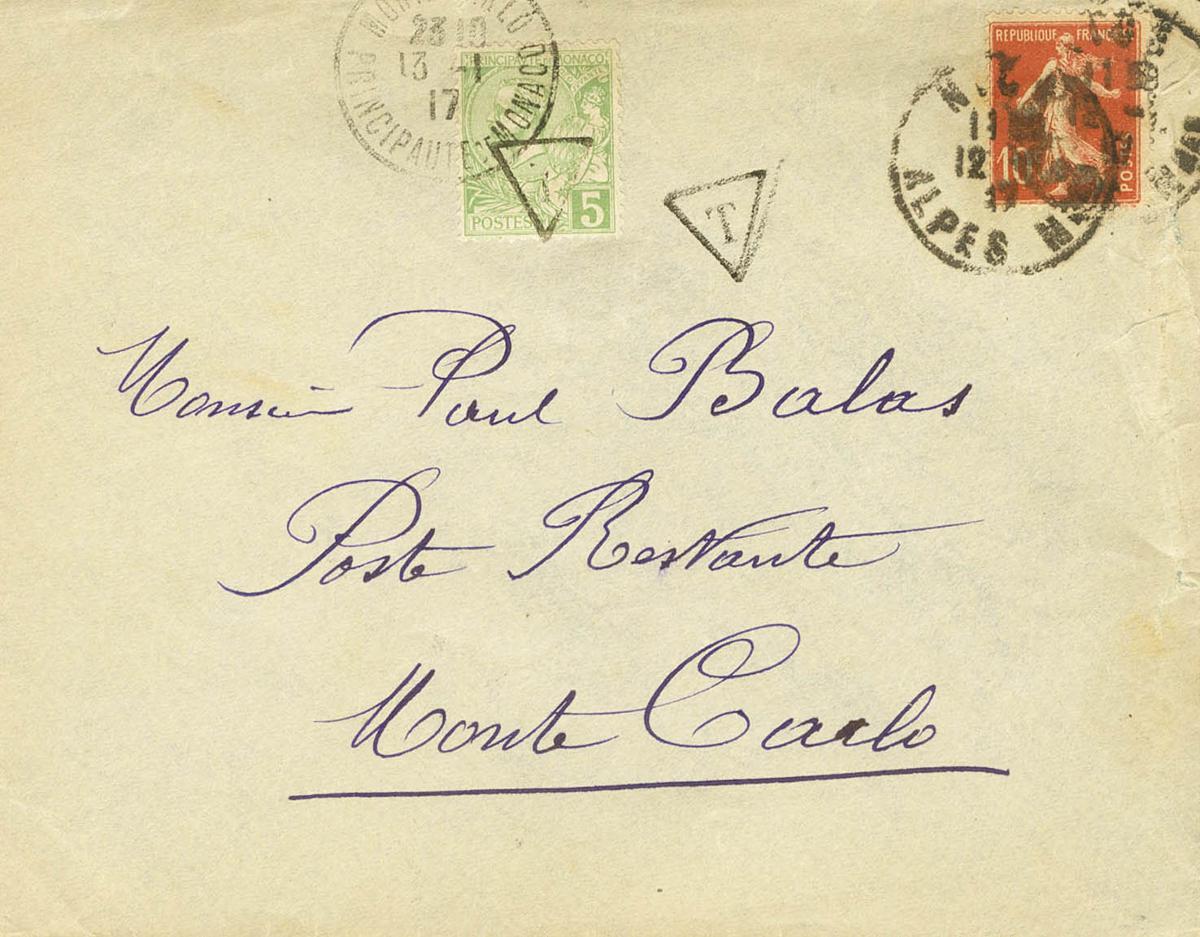 MONTE-CARLO
23 10
13 -1
17
PRINCIPAUTE DE MONACO
PRINCIPAUTE DE MONACO
POSTES
5
T
T
REPUBLIQUE FRANÇAISE
10
POSTES
11
12
ALPES
Monsieur Paul Balas
Poste Restante
Monte Carlo